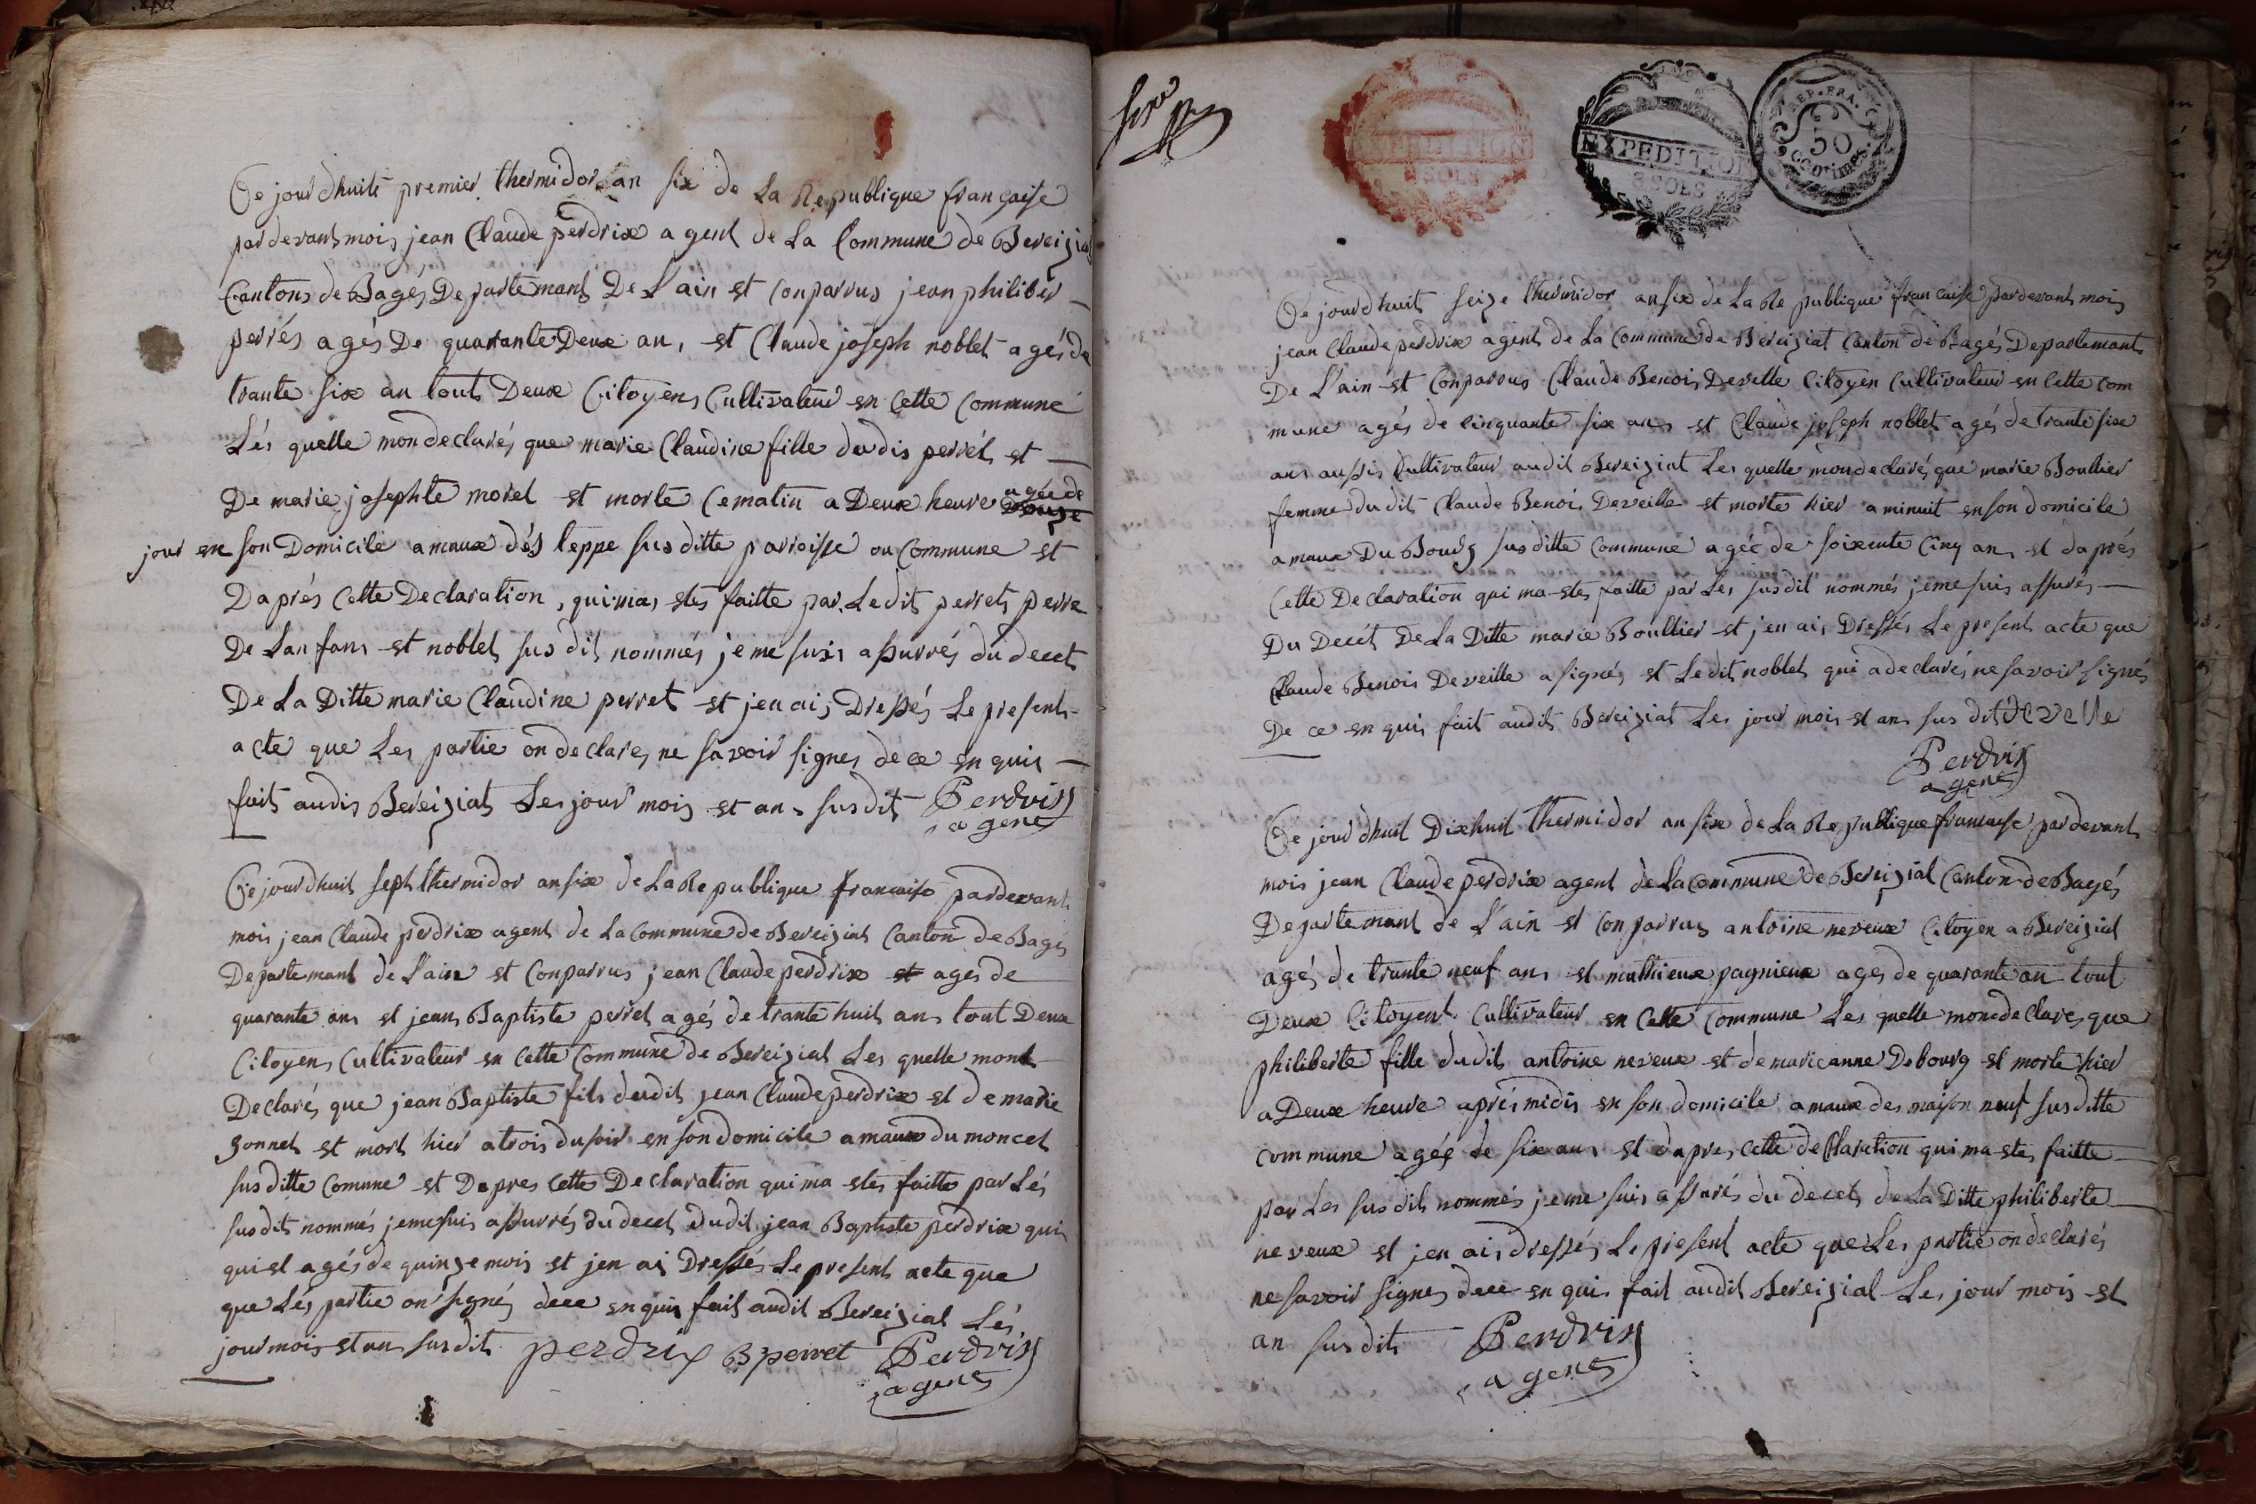 Ce jourdhuit premier thermidor an six de La Republique françaisse
pardevant mois jean Claude perdrix agent de La Commune de Bereiziat
Cantons de Bagés Departemant De L'ain est Conparrus jean philiber
perrés agés De quarante Deux an, est Claude joseph noblet agés de
trante six an tout Deux Citoyens Cultivateur en Cette Commune
Lés quelle mon declarés que marie Claudine fille dudis perrét est
De marie josephte morel est morte Cematin a Deux heure agée de douze
jour en son Domicile amaux dés teppe susditte parroisse ou Commune est
Daprés Cette Declaration, qui mas etés faitte par Ledit perrets perre
De Lanfans est noblet susdit nommés jeme suis assurrés du decet
De La Ditte marie Claudine perret est jen ais Dressés Le presents
acte que Les partie on declares ne savoir signes de ce en quis
fait audis Bereiziat Les jour mois est ans susdit Perdrix
agent
Ce jourdhuit sept thermidor an six de La Republique francaise pardevant
mois jean Claude perdrix agent de La Commune de Bereiziat Canton de Bagés
Departemant de L'ain est Conparrus jean Claude perdrix est ages de
quarante ans et jean Baptiste perret agés de trante huit ans tout Deux
Citoyens Cultivateur en Cette Commune de Bereiziat Les quelle mont
Declarés que jean Baptiste fils dudit jean Claude perdrix est de marie
gonnet est mort hier atrois du soir en son domicile amaux du moncet
susditte Comune est Dapres Cette Declaration qui ma etés faitte par Lés
susdit nommés jeme suis assurrés du decet dudit jean Baptiste perdrix qui
qui est agés de quinze mois est jen ais Dressés Le present acte que
que Lés partie on signés dece enquis fait audit Bereiziat Lés
jour mois est an susdit perdrix B perret Perdrix
agent
six
EXPEDITION
8 SOLS
EXPEDITION
8 SOLS
REP. FRA.
50
Centimes
Ce jourdhuit seize thermidor an six de La Republique francaise pardevant mois
jean Claude perdrix agent de La Commune de Bereiziat Canton de Bagés Departemants
De L'ain est Conparrus Claude Benois Develle Citoyen Cultivateur en Cette Com
mune agés de Cinquante six ans est Claude joseph noblet agés de trante six
ans aussis Cultivateur audit Bereiziat Les quelle mon declarés que marie Boullier
femme dudit Claude Benois Deveille est morte hier aminuit en son domicile
amaux Du Bourg susditte Commune agée de soixente Cinq an, est daprés
Cette Declaration qui ma etés faitte par Les susdit nommés jeme suis assurés
Du Decét De La Ditte marie Boullier est jen ais Dressés Le present acte que
Claude Benois Deveille a signés est Ledit noblet qui a declarés ne savoir signés
De ce en quis fait audit Bereiziat Les jour mois est ans susdit devele
Perdrix
agent
Ce jourdhuit Dixhuit thermidor an six de La Republique francaise pardevant
mois jean Claude perdrix agent de La Commune de Bereiziat Canton de Bagés
Departemant de L'ain est Conparrus antoine neveux Citoyen a Bereiziat
agés de trante neuf ans est mathieux pagnieux ages de quarante an tout
Deux Citoyent Cultivateur en Cette Commune Les quelle mon declares que
philiberte fille dudit antoine neveux est de marieanne Debourg est morte hier
a Deux heure aprés midis en son domicile amaux des maison neuf susditte
Commune agée de six ans est dapres Cette declaration qui ma etés faitte
par Les susdit nommés jeme suis assurés du decet de La Ditte philiberte
neveux est jen ais dressés Le present acte que Les partie on declarés
ne savoir signes dece en quis fait audit Bereiziat Les jour mois est
an susdit Perdrix
agent